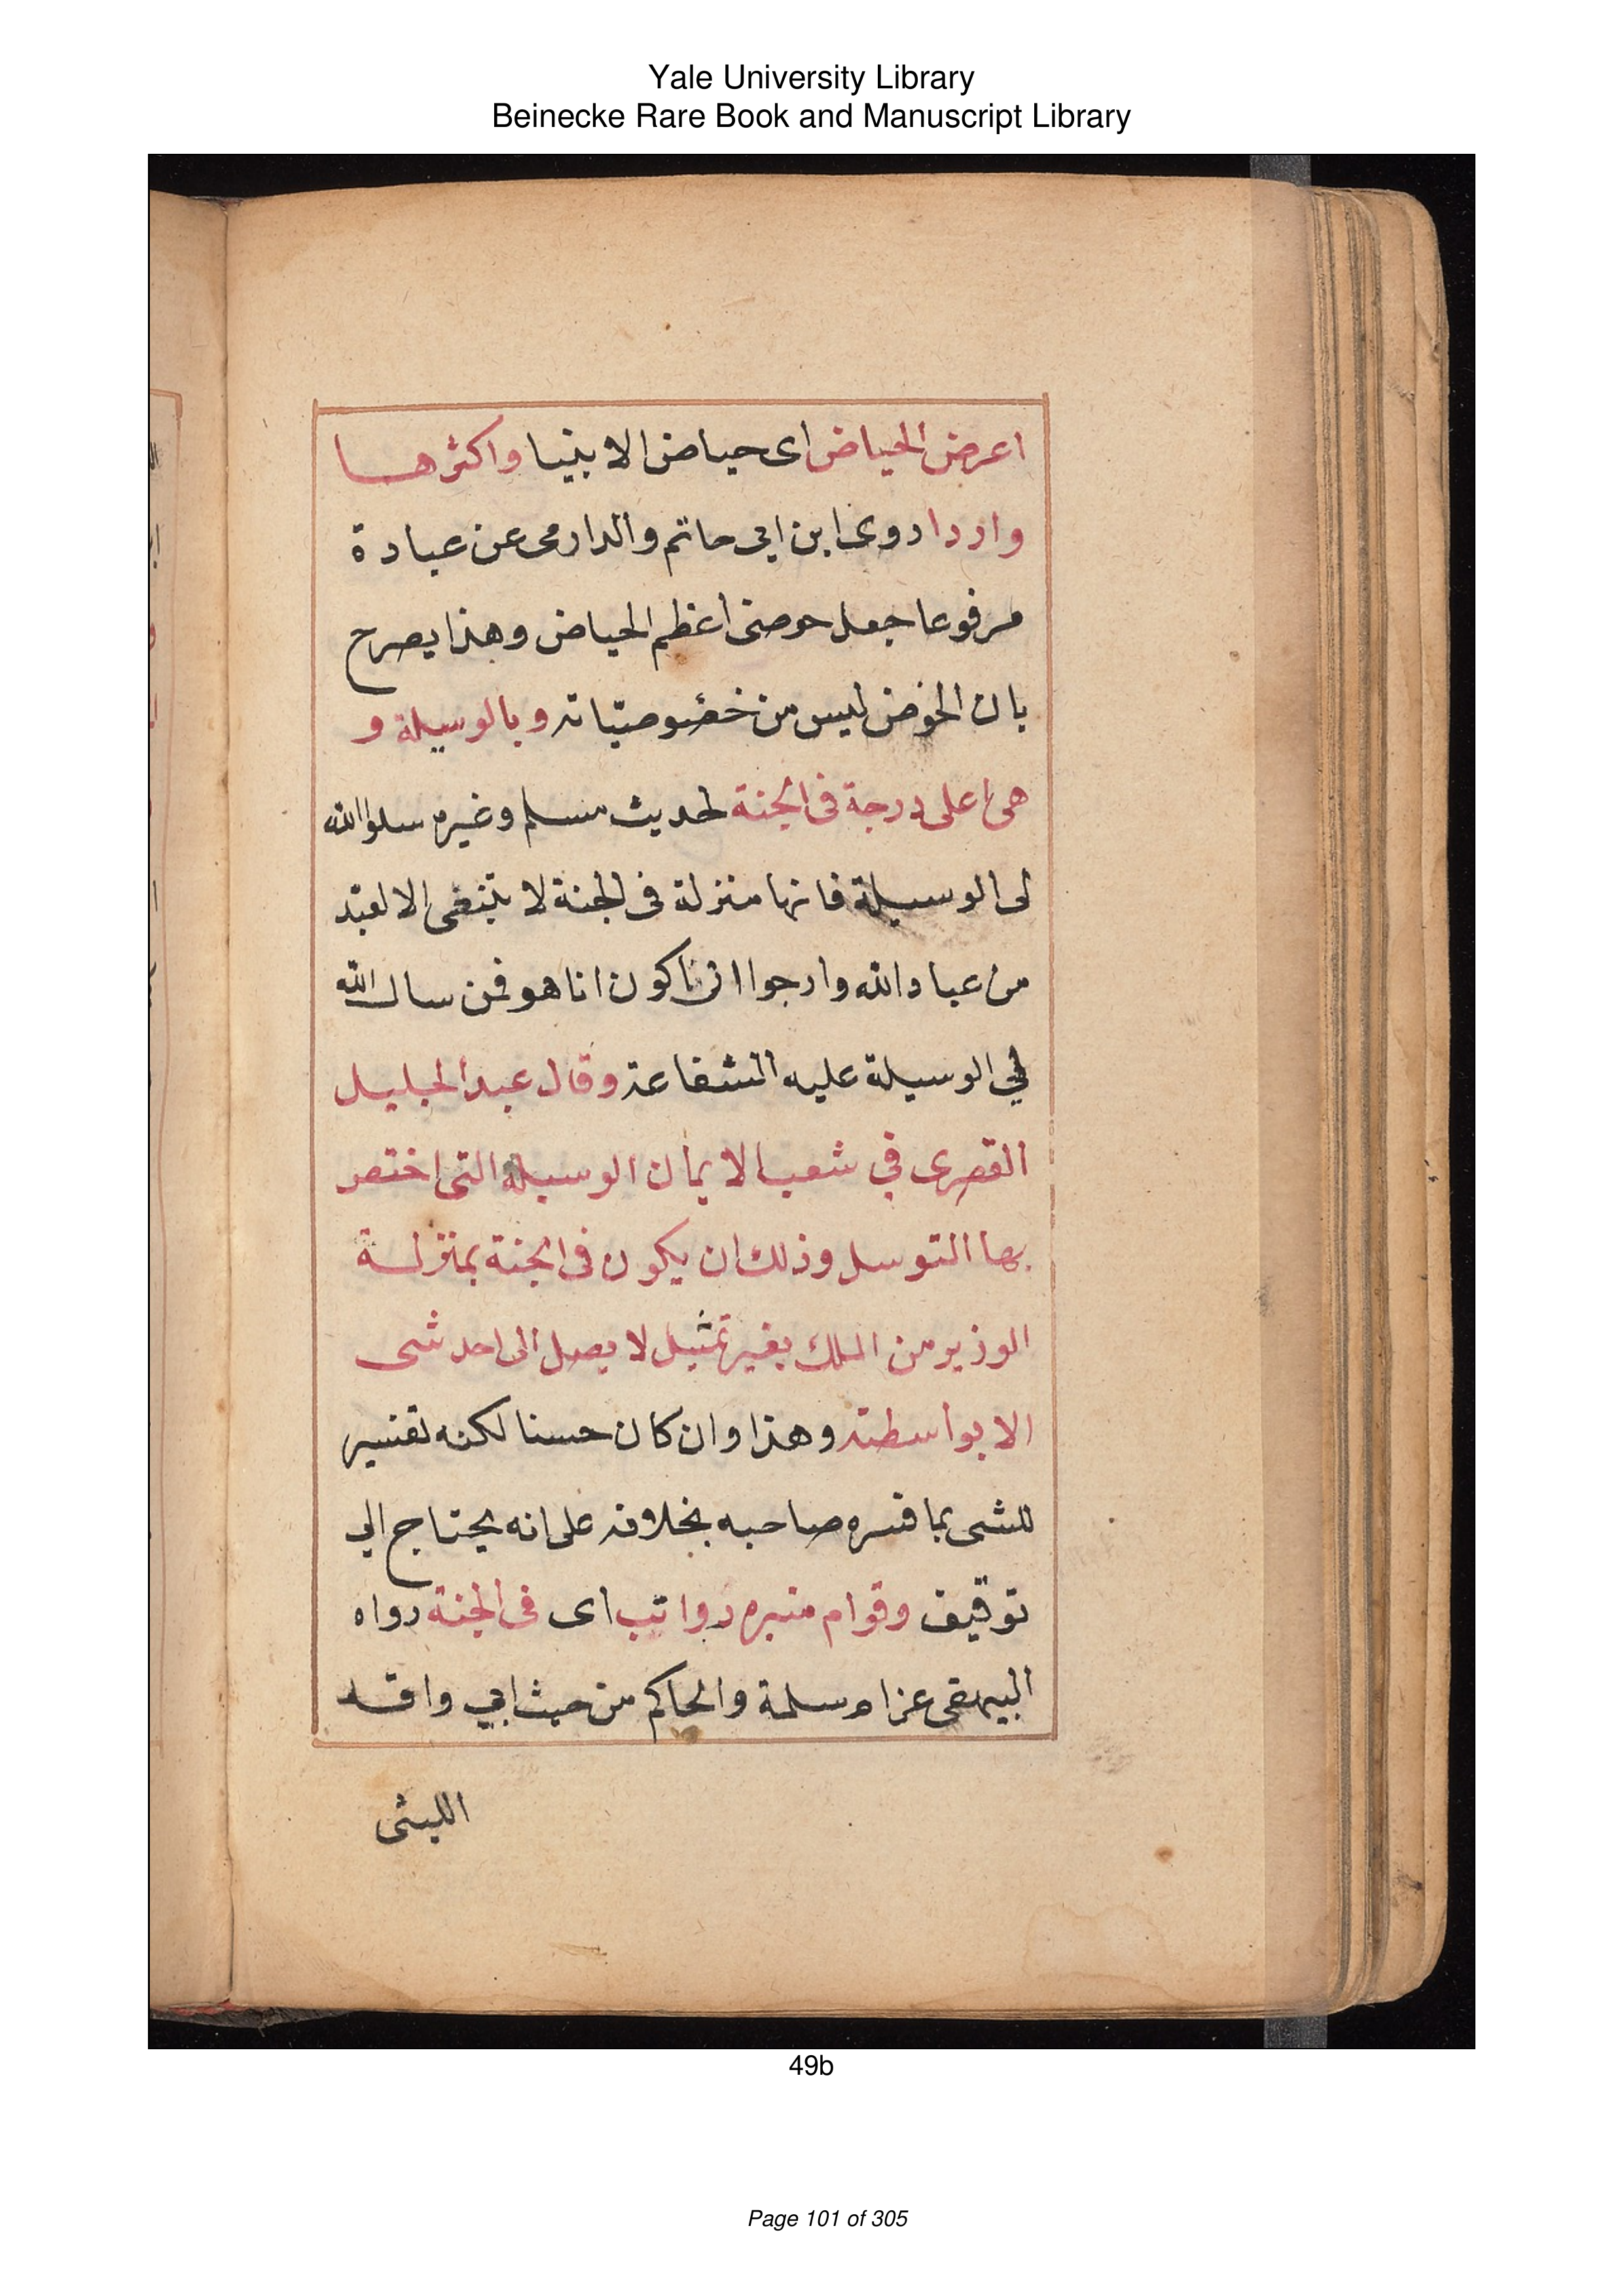 Yale University Library
Beinecke Rare Book and Manuscript Library
اعرض الحياض اى حياض الانبيا واكثرها
واردا روى ابن ابي حاتم والدارمى عن عبادة
مرفوعا جعل حوضى اعظم الحياض وهذا يصرح
بان الخوض ليس من خصوصيّاته وبالوسيلة و
هى اعلى درجة فى الجنة لحديث مسلم وغيره سلوا الله
لى الوسيلة فانها منزلة فى الجنة لا تنبغى الا لعبد
من عباد الله وارجوا ان اكون انا هو فمن سال الله
لي الوسيلة عليه الشفاعة وقال عبد الجليل
القصرى في شعب الايمان الوسيلة التى اختص
بها التوسل وذلك ان يكون فى الجنة بمنزلة
الوزير من الملك بغير تمثيل لا يصل الى احد شى
الا بواسطته وهذا وان كان حسنا لكنه تفسير
للشى بما فسره صاحبه بخلافه على انه يحتاج الي
توقيف وقوام منبره رواتب اى فى الجنة رواه
البيهقى عن ام سلمة والحاكم من حيث ابي واقد
الليثى
49b
Page 101 of 305